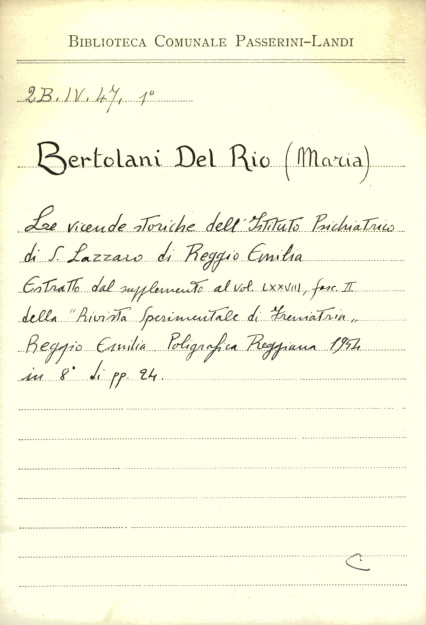 BIBLIOTECA COMUNALE PASSERINI-LANDI
2B.IV.47, 1°
Bertolani Del Rio (Maria)
Le vicende storiche dell'Istituto Psichiatrico
di S. Lazzaro di Reggio Emilia
Estratto dal supplemento al vol. LXXVIII, fasc. II
della "Rivista Sperimentale di Freniatria„
Reggio Emilia Poligrafica Reggiana 1954
in 8° di pp. 24.
C